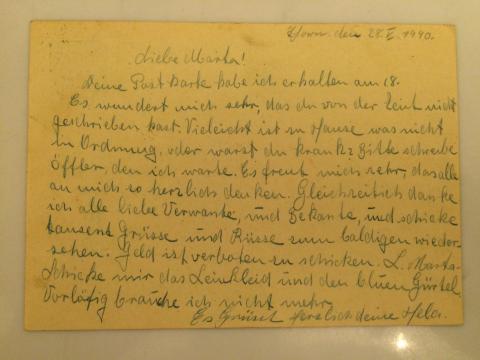 Thorn. den 28.V.1940.
Liebe Marta!
Deine Post karte habe ich erhalten am 18.
Es wundert mich sehr, das du von der Zeit nicht
geschrieben hast. Vieleicht ist zu Hause was nicht
in Ordnung, oder warst du krank? Bitte schreibe
öffter, den ich warte. Es freut mich sehr, das alle
an mich so herzlich denken. Gleichzeitich danke
ich alle liebe Verwante, und Bekante, und schicke
tausend Grüsse und Küsse zum baldigen wieder-
sehen. Geld ist verboten zu schicken. L. Marta-
Schicke mir das Leinkleid und den blauen Gürtel
Vorläfig brauche ich nicht mehr.
Es Grüsst herzlich deine Hela.